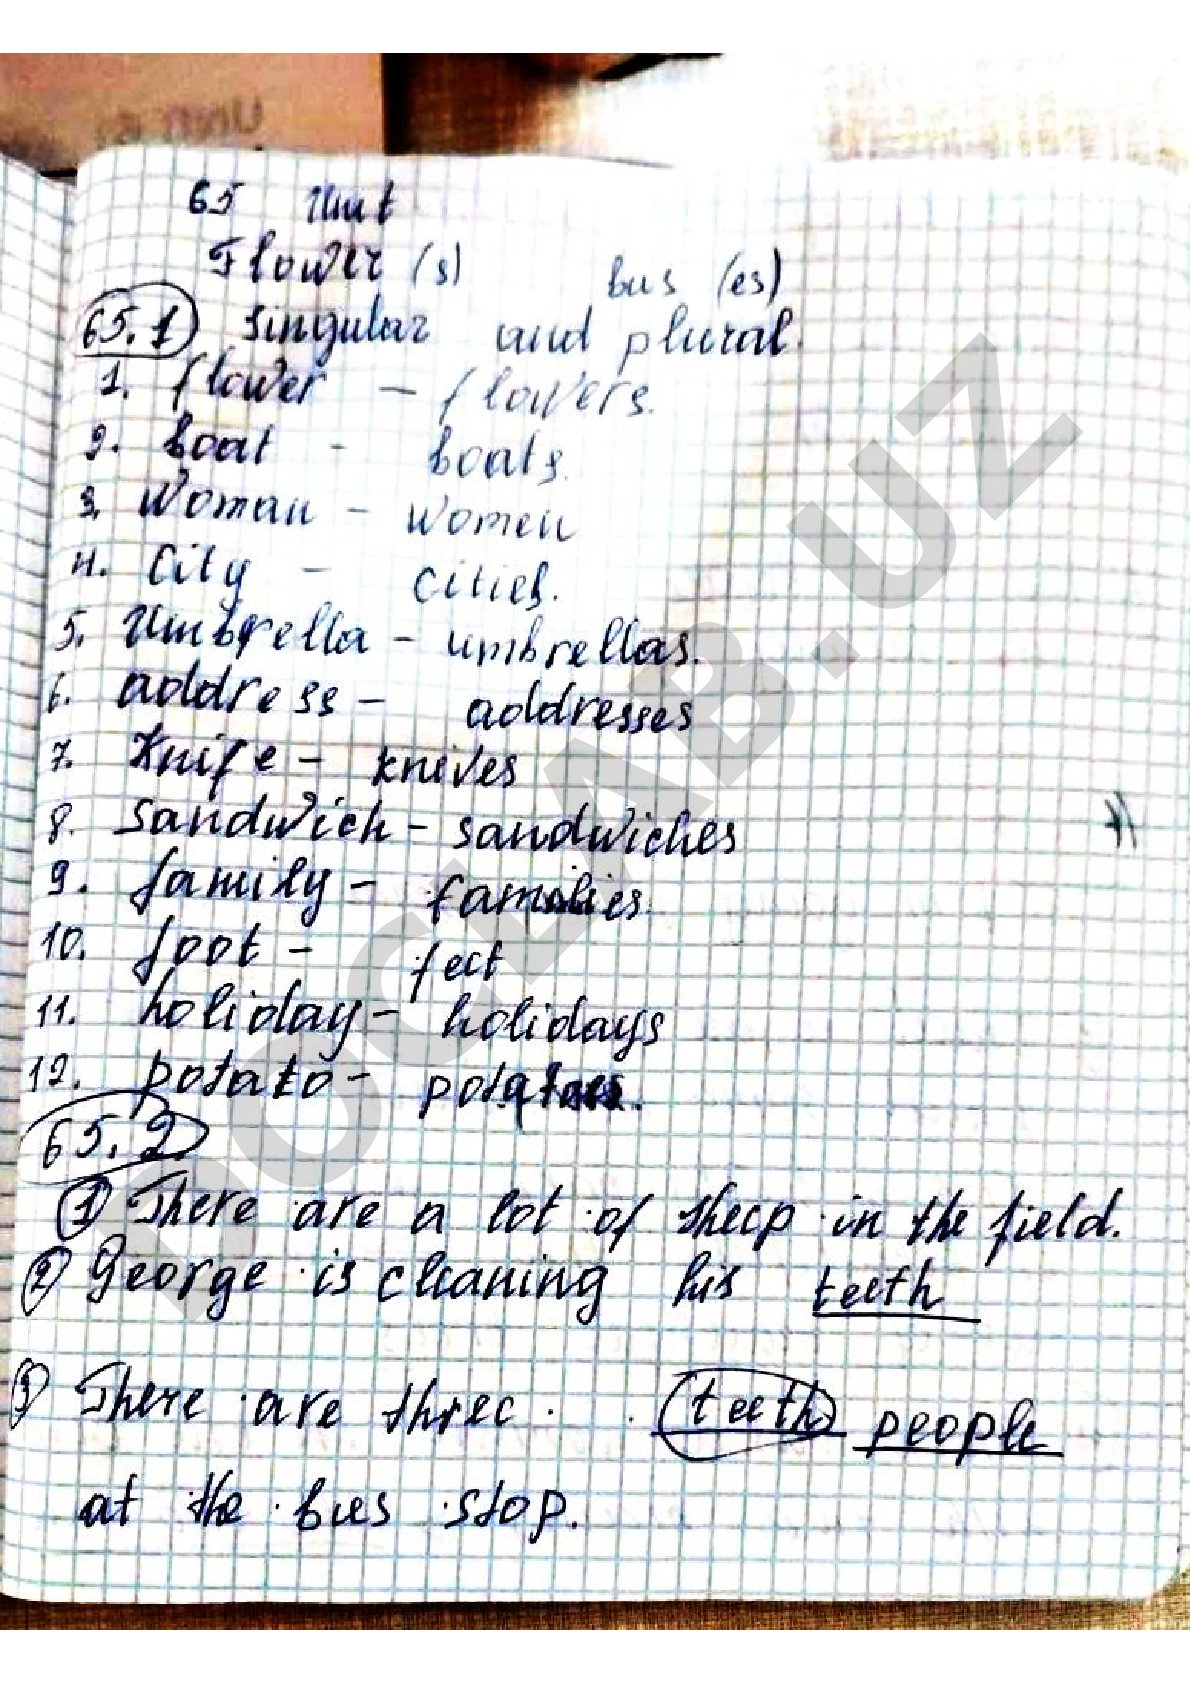 65 Unit
Flower (s) bus (es)
65.1 Singular and plural.
1. flower - flowers.
2. boat - boats.
3. Woman - women
4. City - cities.
5. Umbrella - umbrellas.
6. address - addresses
7. Knife - knives
8. Sandwich - sandwiches
9. family - families.
10. foot - feet
11. holiday - holidays
12. potato - potatoes.
65.2
1 There are a lot of sheep in the field.
2 George is cleaning his teeth
3 There are three teeth people
at the bus stop.
DOCLAB.UZ